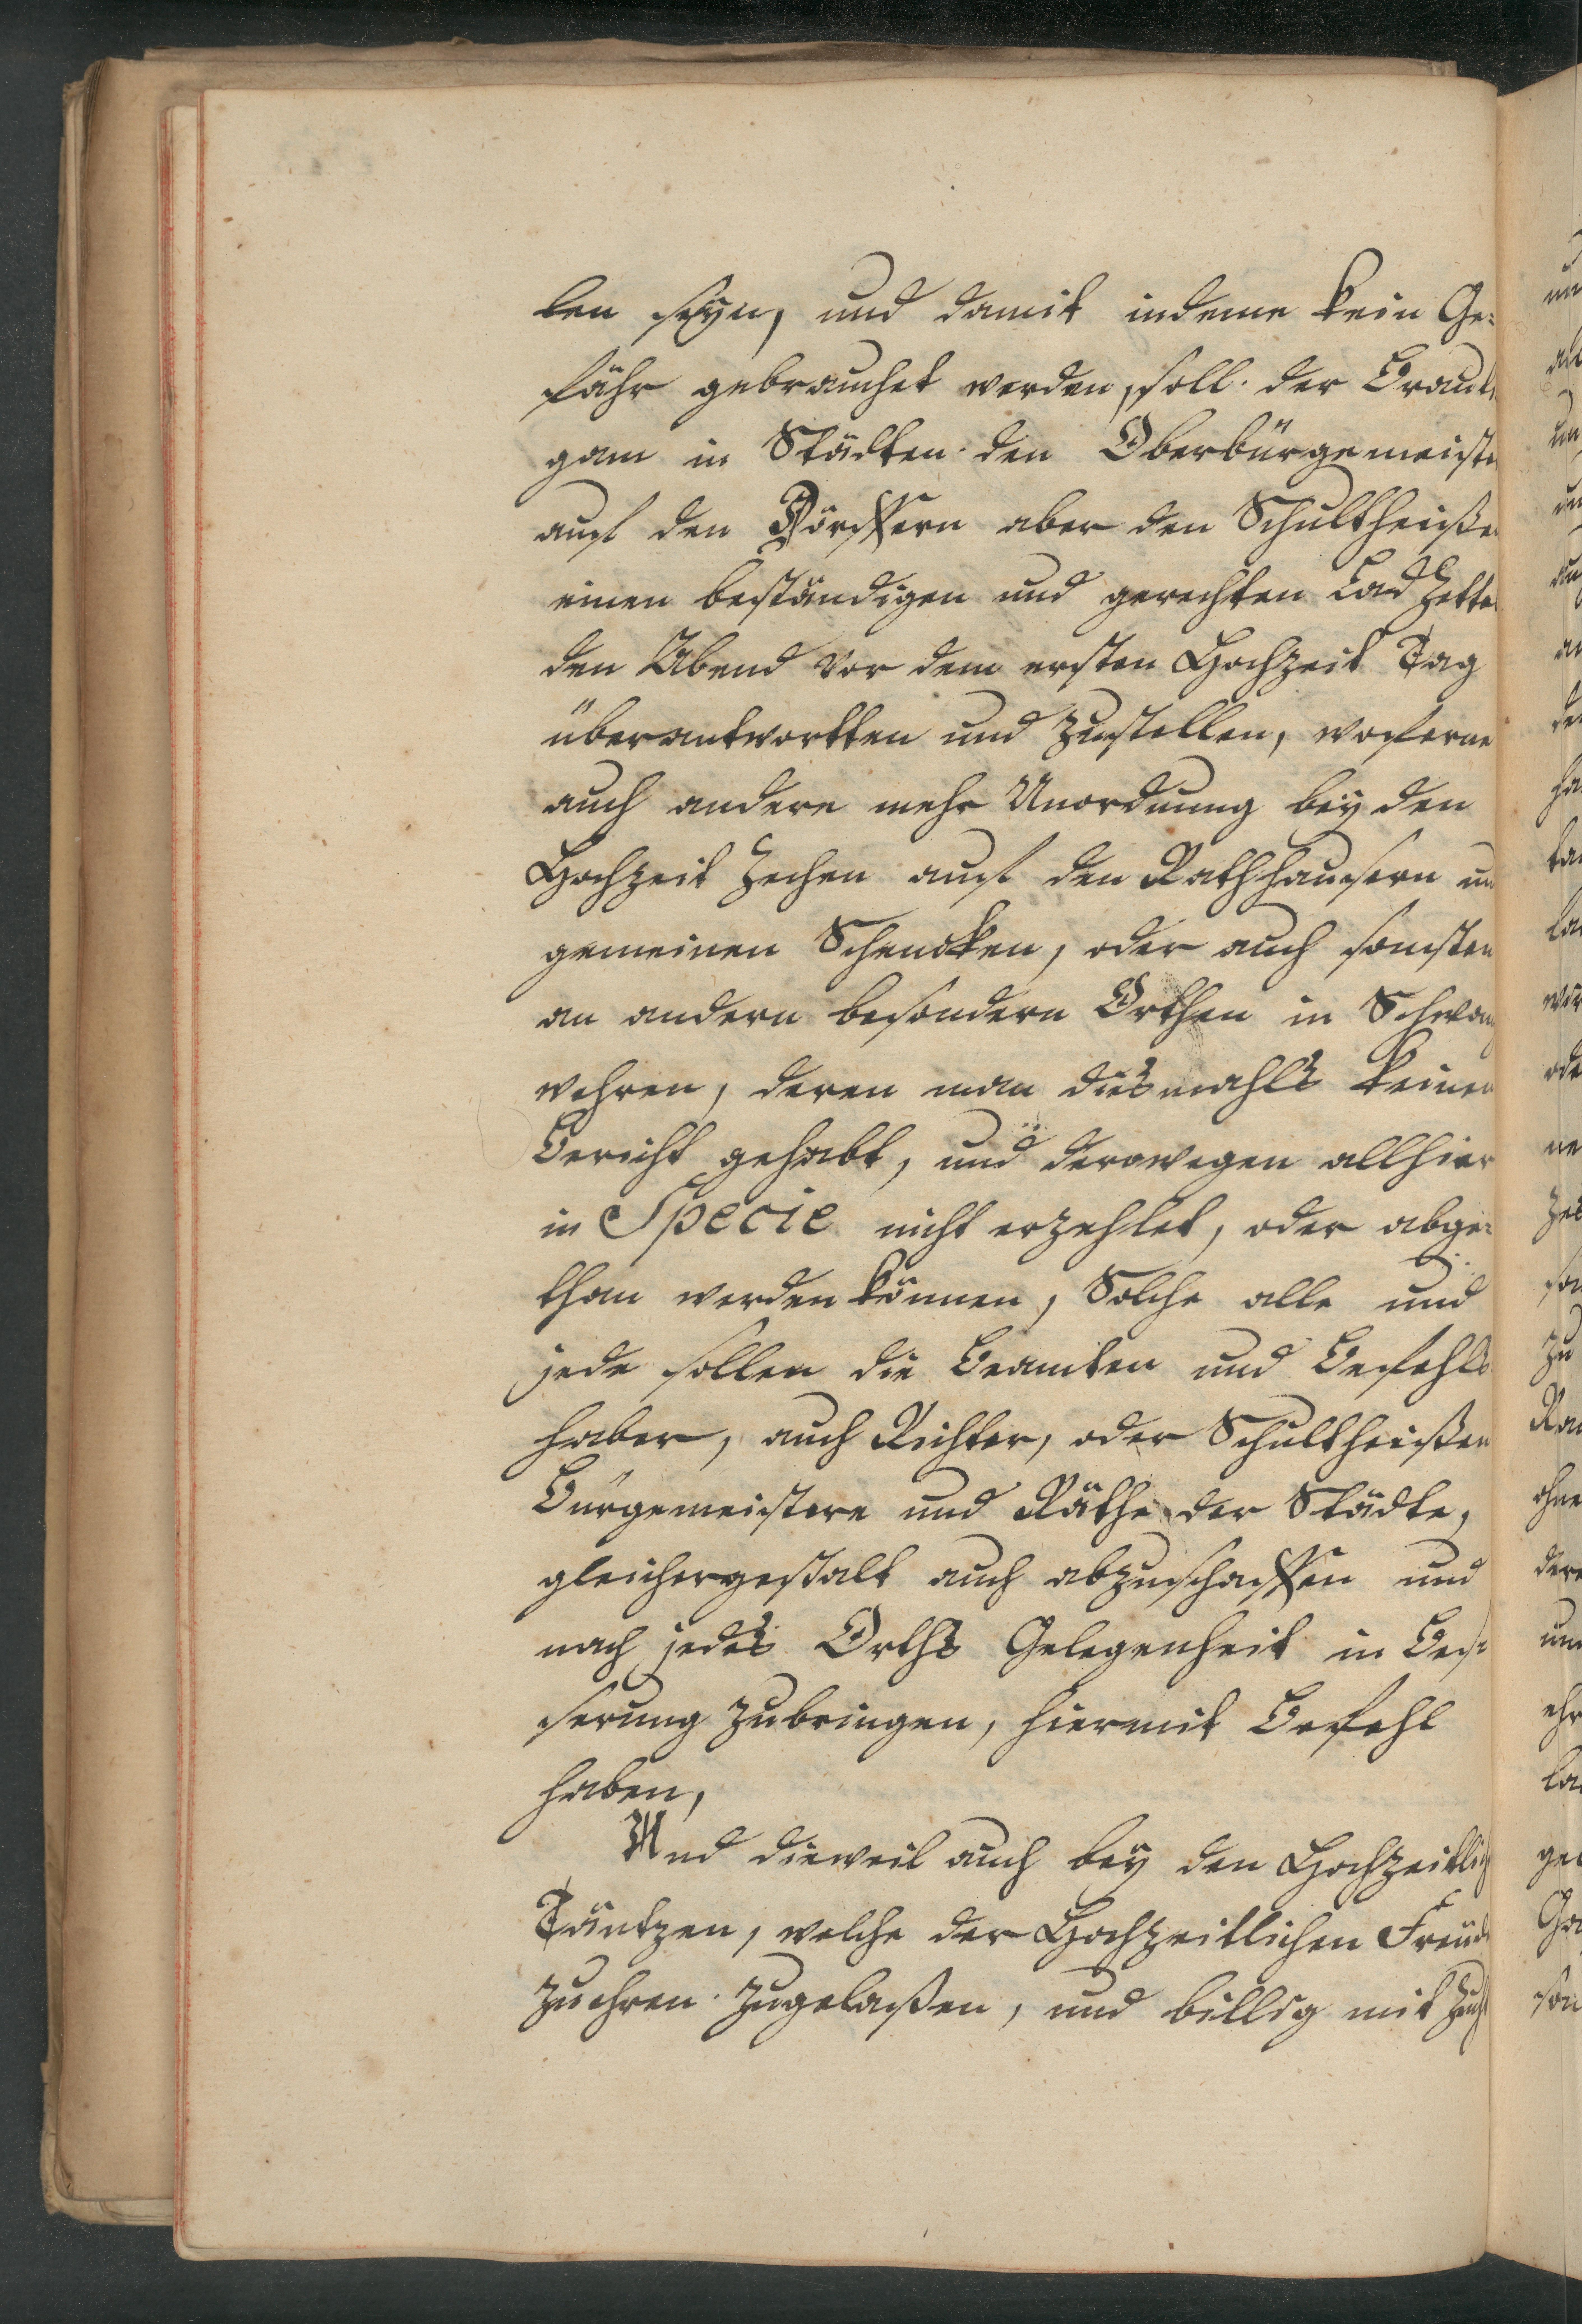 ten seyn, und damit indeme kein Ge-
fähr gebrauchet werden, soll der Bräuti
gam in Städten den Oberbürgemeiste
auf den Dörffern aber den Schultheiße
einen beständigen und gerechten Lad Zette
den Abend vor dem ersten Hochzeit Tag
überantwortten und zustellen, woferne
auch andere mehr Unordnung bey den
Hochzeit Zechen auf den Rathhäusern un
gemeinen Schencken, oder auch sonsten
an andern besondern Orthen in Schwan
wehren, deren man diesmahls keinen
Bericht gehabt, und derowegen allhier
in Specie nicht erzehlet, oder abge-
than werden können, Solche alle und
jede sollen die Beamten und Befehls
haber, auch Richter, oder Schultheißen
Bürgemeistere und Räthe der Städte,
gleichergestalt auch abzuschaffen und
nach jedes Orths Gelegenheit in Bes-
serung zubringen, hiermit Befehl
haben,
Und dieweil auch bey den Hochzeitlich
Täntzen, welche der Hochzeitlichen Freud
zu ehren zugelaßen, und billig mit Zucht